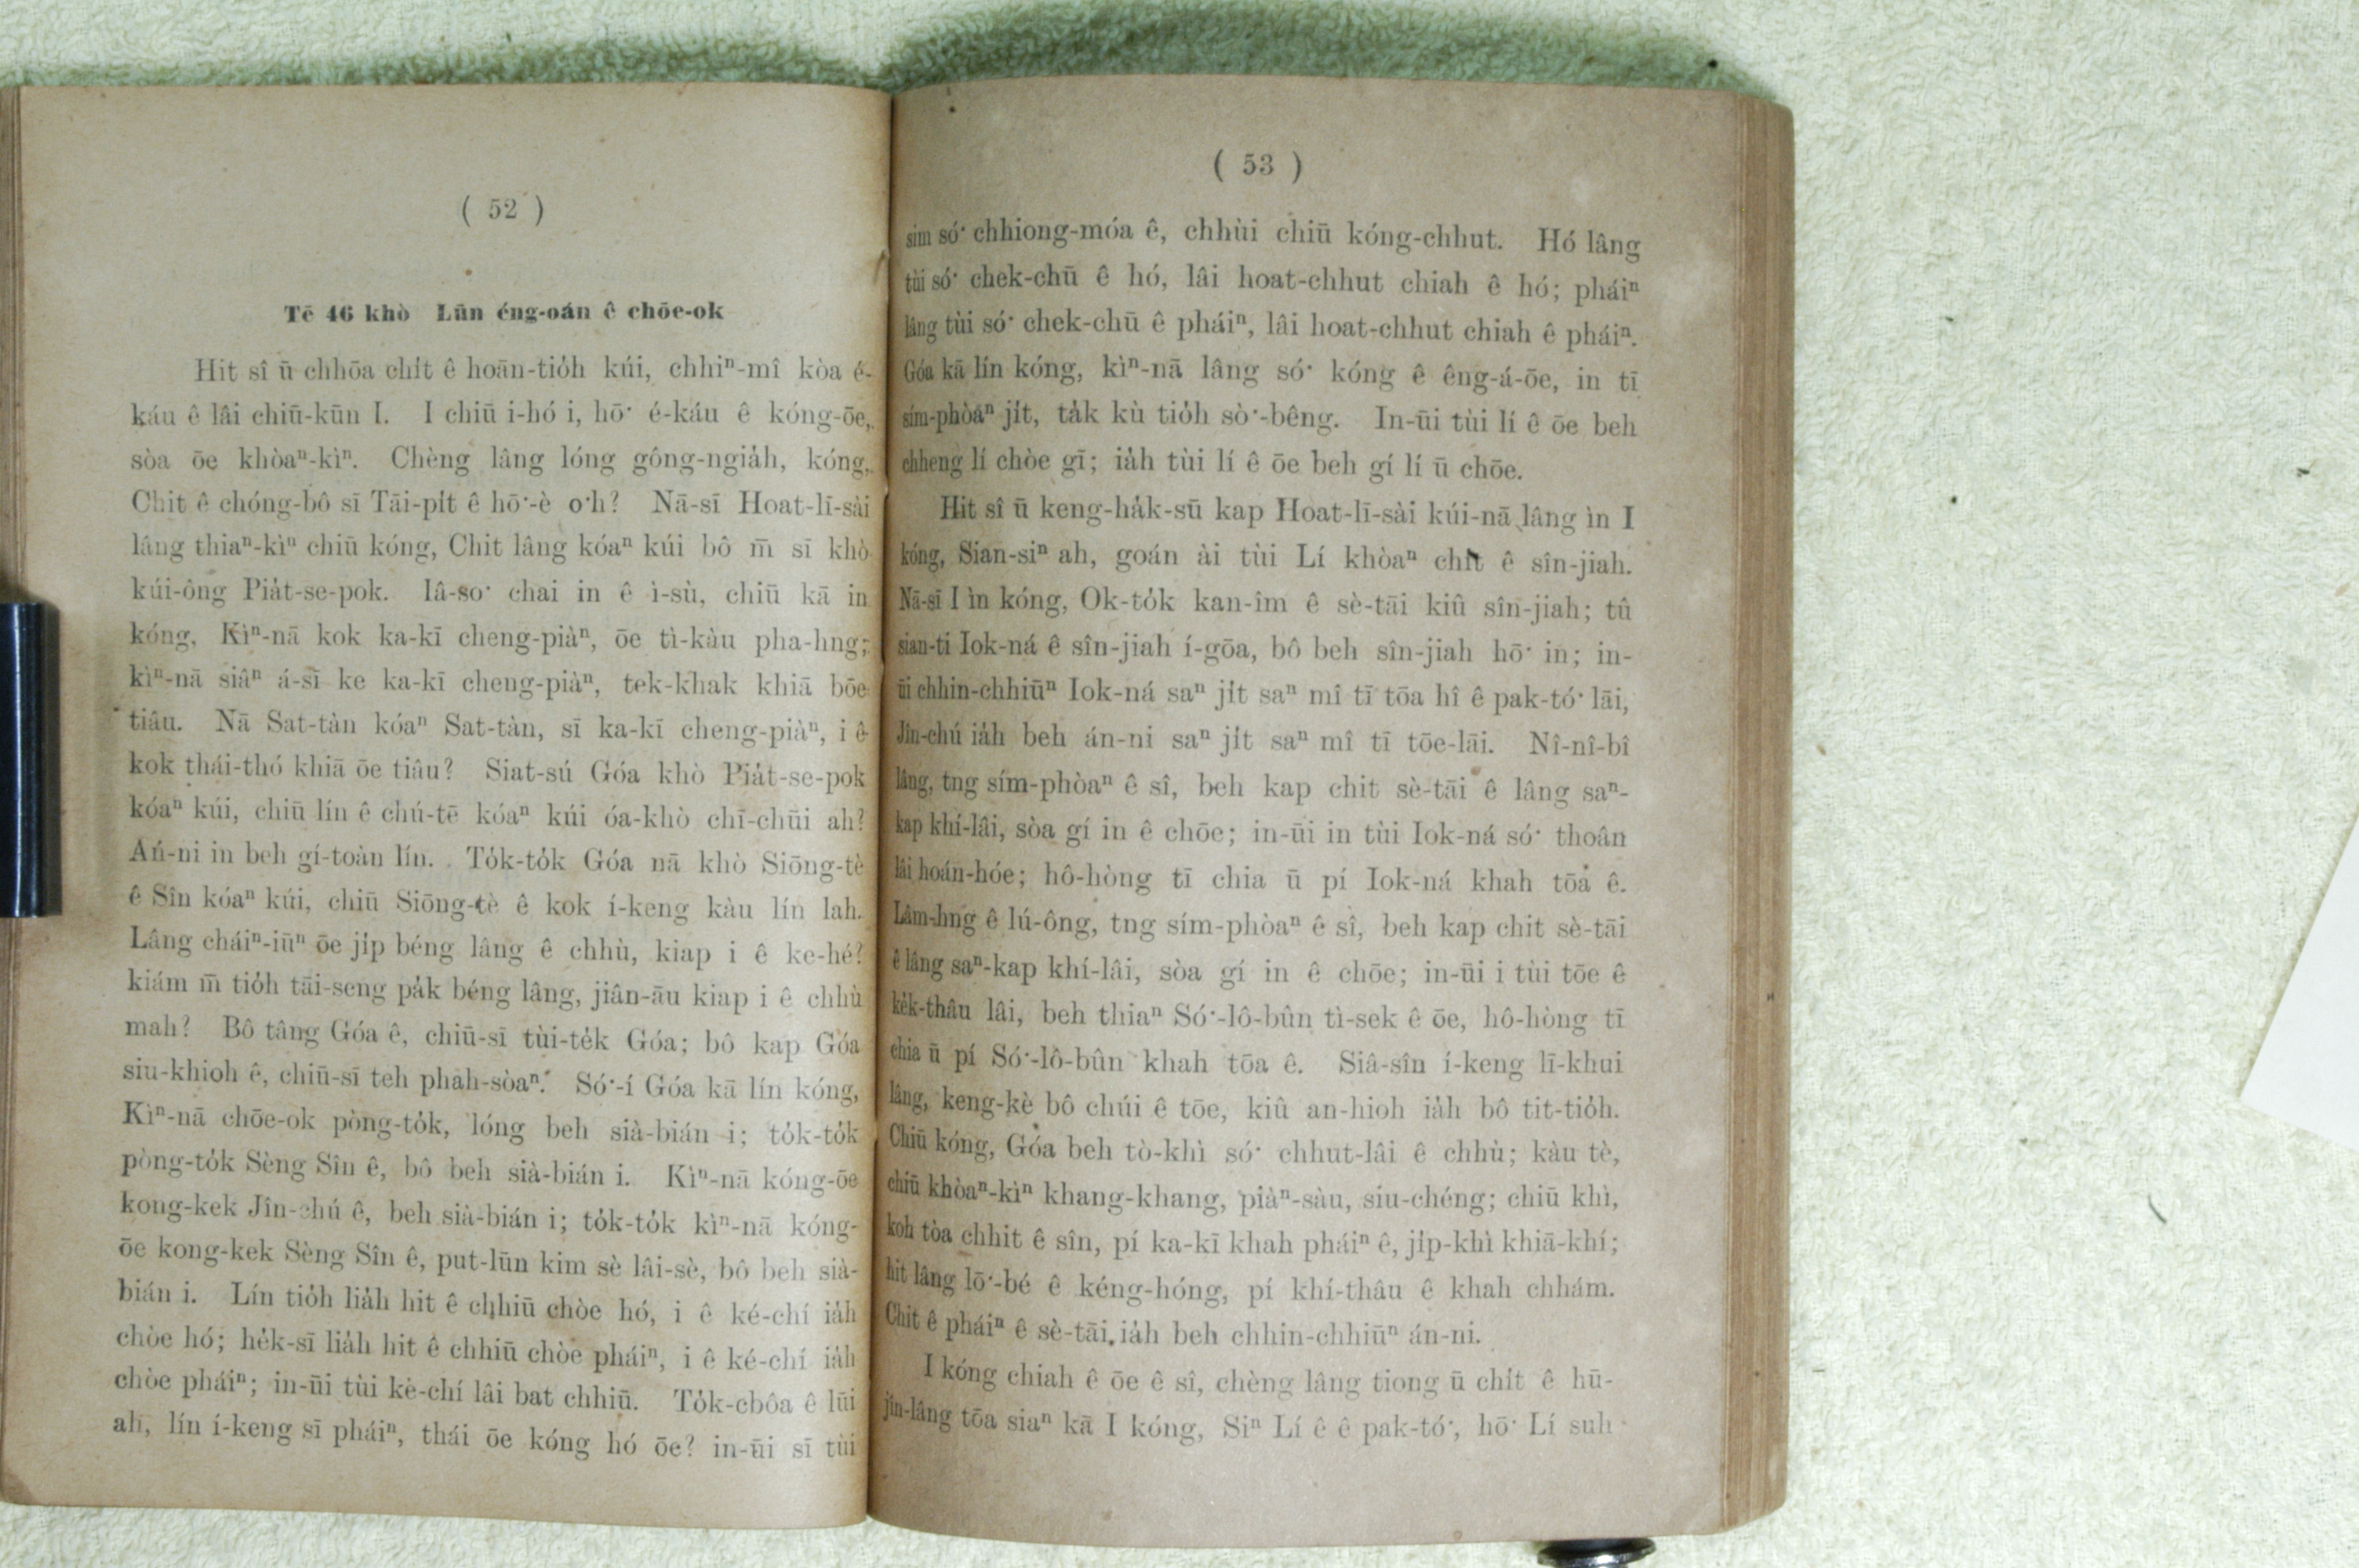 ( 52 )
Tē 46 khò Lūn éng-oán ê chōe-ok
Hit sî ū chhōa chi̍t ê hoān-tio̍h kúi, chhiⁿ-mî kòa é-
káu ê lâi chiū-kūn I. I chiū i-hó i, hō͘ é-káu ê kóng-ōe,
sòa ōe khòaⁿ-kìⁿ. Chèng lâng lóng gông-ngia̍h, kóng,
Chit ê chóng-bô sī Tāi-pi̍t ê hō͘-è o͘h? Nā-sī Hoat-lī-sài
lâng thiaⁿ-kìⁿ chiū kóng, Chit lâng kóaⁿ kúi bô m̄ sī khò
kúi-ông Pia̍t-se-pok. Iâ-so͘ chai in ê ì-sù, chiū kā in
kóng, Kìⁿ-nā kok ka-kī cheng-piàⁿ, ōe tì-kàu pha-hng;
kìⁿ-nā siâⁿ á-sī ke ka-kī cheng-piàⁿ, tek-khak khiā bōe
tiâu. Nā Sat-tàn kóaⁿ Sat-tàn, sī ka-kī cheng-piàⁿ, i ê
kok thái-thó khiā ōe tiâu? Siat-sú Góa khò Pia̍t-se-pok
kóaⁿ kúi, chiū lín ê chú-tē kóaⁿ kúi óa-khò chī-chūi ah?
Án-ni in beh gí-toàn lín. To̍k-to̍k Góa nā khò Siōng-tè
ê Sîn kóaⁿ kúi, chiū Siōng-tè ê kok í-keng kàu lín lah.
Lâng cháiⁿ-iūⁿ ōe ji̍p béng lâng ê chhù, kiap i ê ke-hé?
kiám m̄ tio̍h tāi-seng pa̍k béng lâng, jiân-āu kiap i ê chhù
mah? Bô tâng Góa ê, chiū-sī tùi-te̍k Góa; bô kap Góa
siu-khioh ê, chiū-sī teh phah-sòaⁿ. Só͘-í Góa kā lín kóng,
Kìⁿ-nā chōe-ok pòng-to̍k, lóng beh sià-bián i; to̍k-to̍k
pòng-to̍k Sèng Sîn ê, bô beh sià-bián i. Kìⁿ-nā kóng-ōe
kong-kek Jîn-chú ê, beh sià-bián i; to̍k-to̍k kìⁿ-nā kóng-
ōe kong-kek Sèng Sîn ê, put-lūn kim sè lâi-sè, bô beh sià-
bián i. Lín tio̍h lia̍h hit ê chhiū chòe hó, i ê ké-chí ia̍h
chòe hó; he̍k-sī lia̍h hit ê chhiū chòe pháiⁿ, i ê ké-chí ia̍h
chòe pháiⁿ; in-ūi tùi kè-chí lâi bat chhiū. To̍k-chôa ê lūi
ah, lín í-keng sī pháiⁿ, thái ōe kóng hó ōe? in-ūi sī tùi
( 53 )
sim só͘ chhiong-móa ê, chhùi chiū kóng-chhut. Hó lâng
tùi só͘ chek-chū ê hó, lâi hoat-chhut chiah ê hó; pháiⁿ
lâng tùi só͘ chek-chū ê pháiⁿ, lâi hoat-chhut chiah ê pháiⁿ.
Góa kā lín kóng, kìⁿ-nā lâng só͘ kóng ê êng-á-ōe, in tī
sím-phòaⁿ ji̍t, ta̍k kù tio̍h sò͘-bêng. In-ūi tùi lí ê ōe beh
chheng lí chòe gī; ia̍h tùi lí ê ōe beh gí lí ū chōe.
Hit sî ū keng-ha̍k-sū kap Hoat-lī-sài kúi-nā lâng ìn I
kóng, Sian-siⁿ ah, goán ài tùi Lí khòaⁿ chi̍t ê sîn-jiah.
Nā-sī I ìn kóng, Ok-to̍k kan-îm ê sè-tāi kiû sîn-jiah; tû
sian-ti Iok-ná ê sîn-jiah í-gōa, bô beh sîn-jiah hō͘ in; in-
ūi chhin-chhiūⁿ Iok-ná saⁿ ji̍t saⁿ mî tī tōa hî ê pak-tó͘ lāi,
Jîn-chú ia̍h beh án-ni saⁿ ji̍t saⁿ mî tī tōe-lāi. Nî-nî-bî
lâng, tng sím-phòaⁿ ê sî, beh kap chit sè-tāi ê lâng saⁿ-
kap khí-lâi, sòa gí in ê chōe; in-ūi in tùi Iok-ná só͘ thoân
lâi hoán-hóe; hô-hòng tī chia ū pí Iok-ná khah tōa ê.
Lâm-hng ê lú-ông, tng sím-phòaⁿ ê sî, beh kap chit sè-tāi
ê lâng saⁿ-kap khí-lâi, sòa gí in ê chōe; in-ūi i tùi tōe ê
ke̍k-thâu lâi, beh thiaⁿ Só͘-lô-bûn tì-sek ê ōe, hô-hòng tī
chia ū pí Só͘-lô-bûn khah tōa ê. Siâ-sîn í-keng lī-khui
lâng, keng-kè bô chúi ê tōe, kiû an-hioh ia̍h bô tit-tio̍h.
Chiū kóng, Góa beh tò-khì só͘ chhut-lâi ê chhù; kàu tè,
chiū khòaⁿ-kìⁿ khang-khang, piàⁿ-sàu, siu-chéng; chiū khì,
koh tòa chhit ê sîn, pí ka-kī khah pháiⁿ ê, ji̍p-khì khiā-khí;
hit lâng lō͘-bé ê kéng-hóng, pí khí-thâu ê khah chhám.
Chit ê pháiⁿ ê sè-tāi ia̍h beh chhin-chhiūⁿ án-ni.
I kóng chiah ê ōe ê sî, chèng lâng tiong ū chi̍t ê hū-
jîn-lâng tōa siaⁿ kā I kóng, Siⁿ Lí ê ê pak-tó͘, hō͘ Lí suh